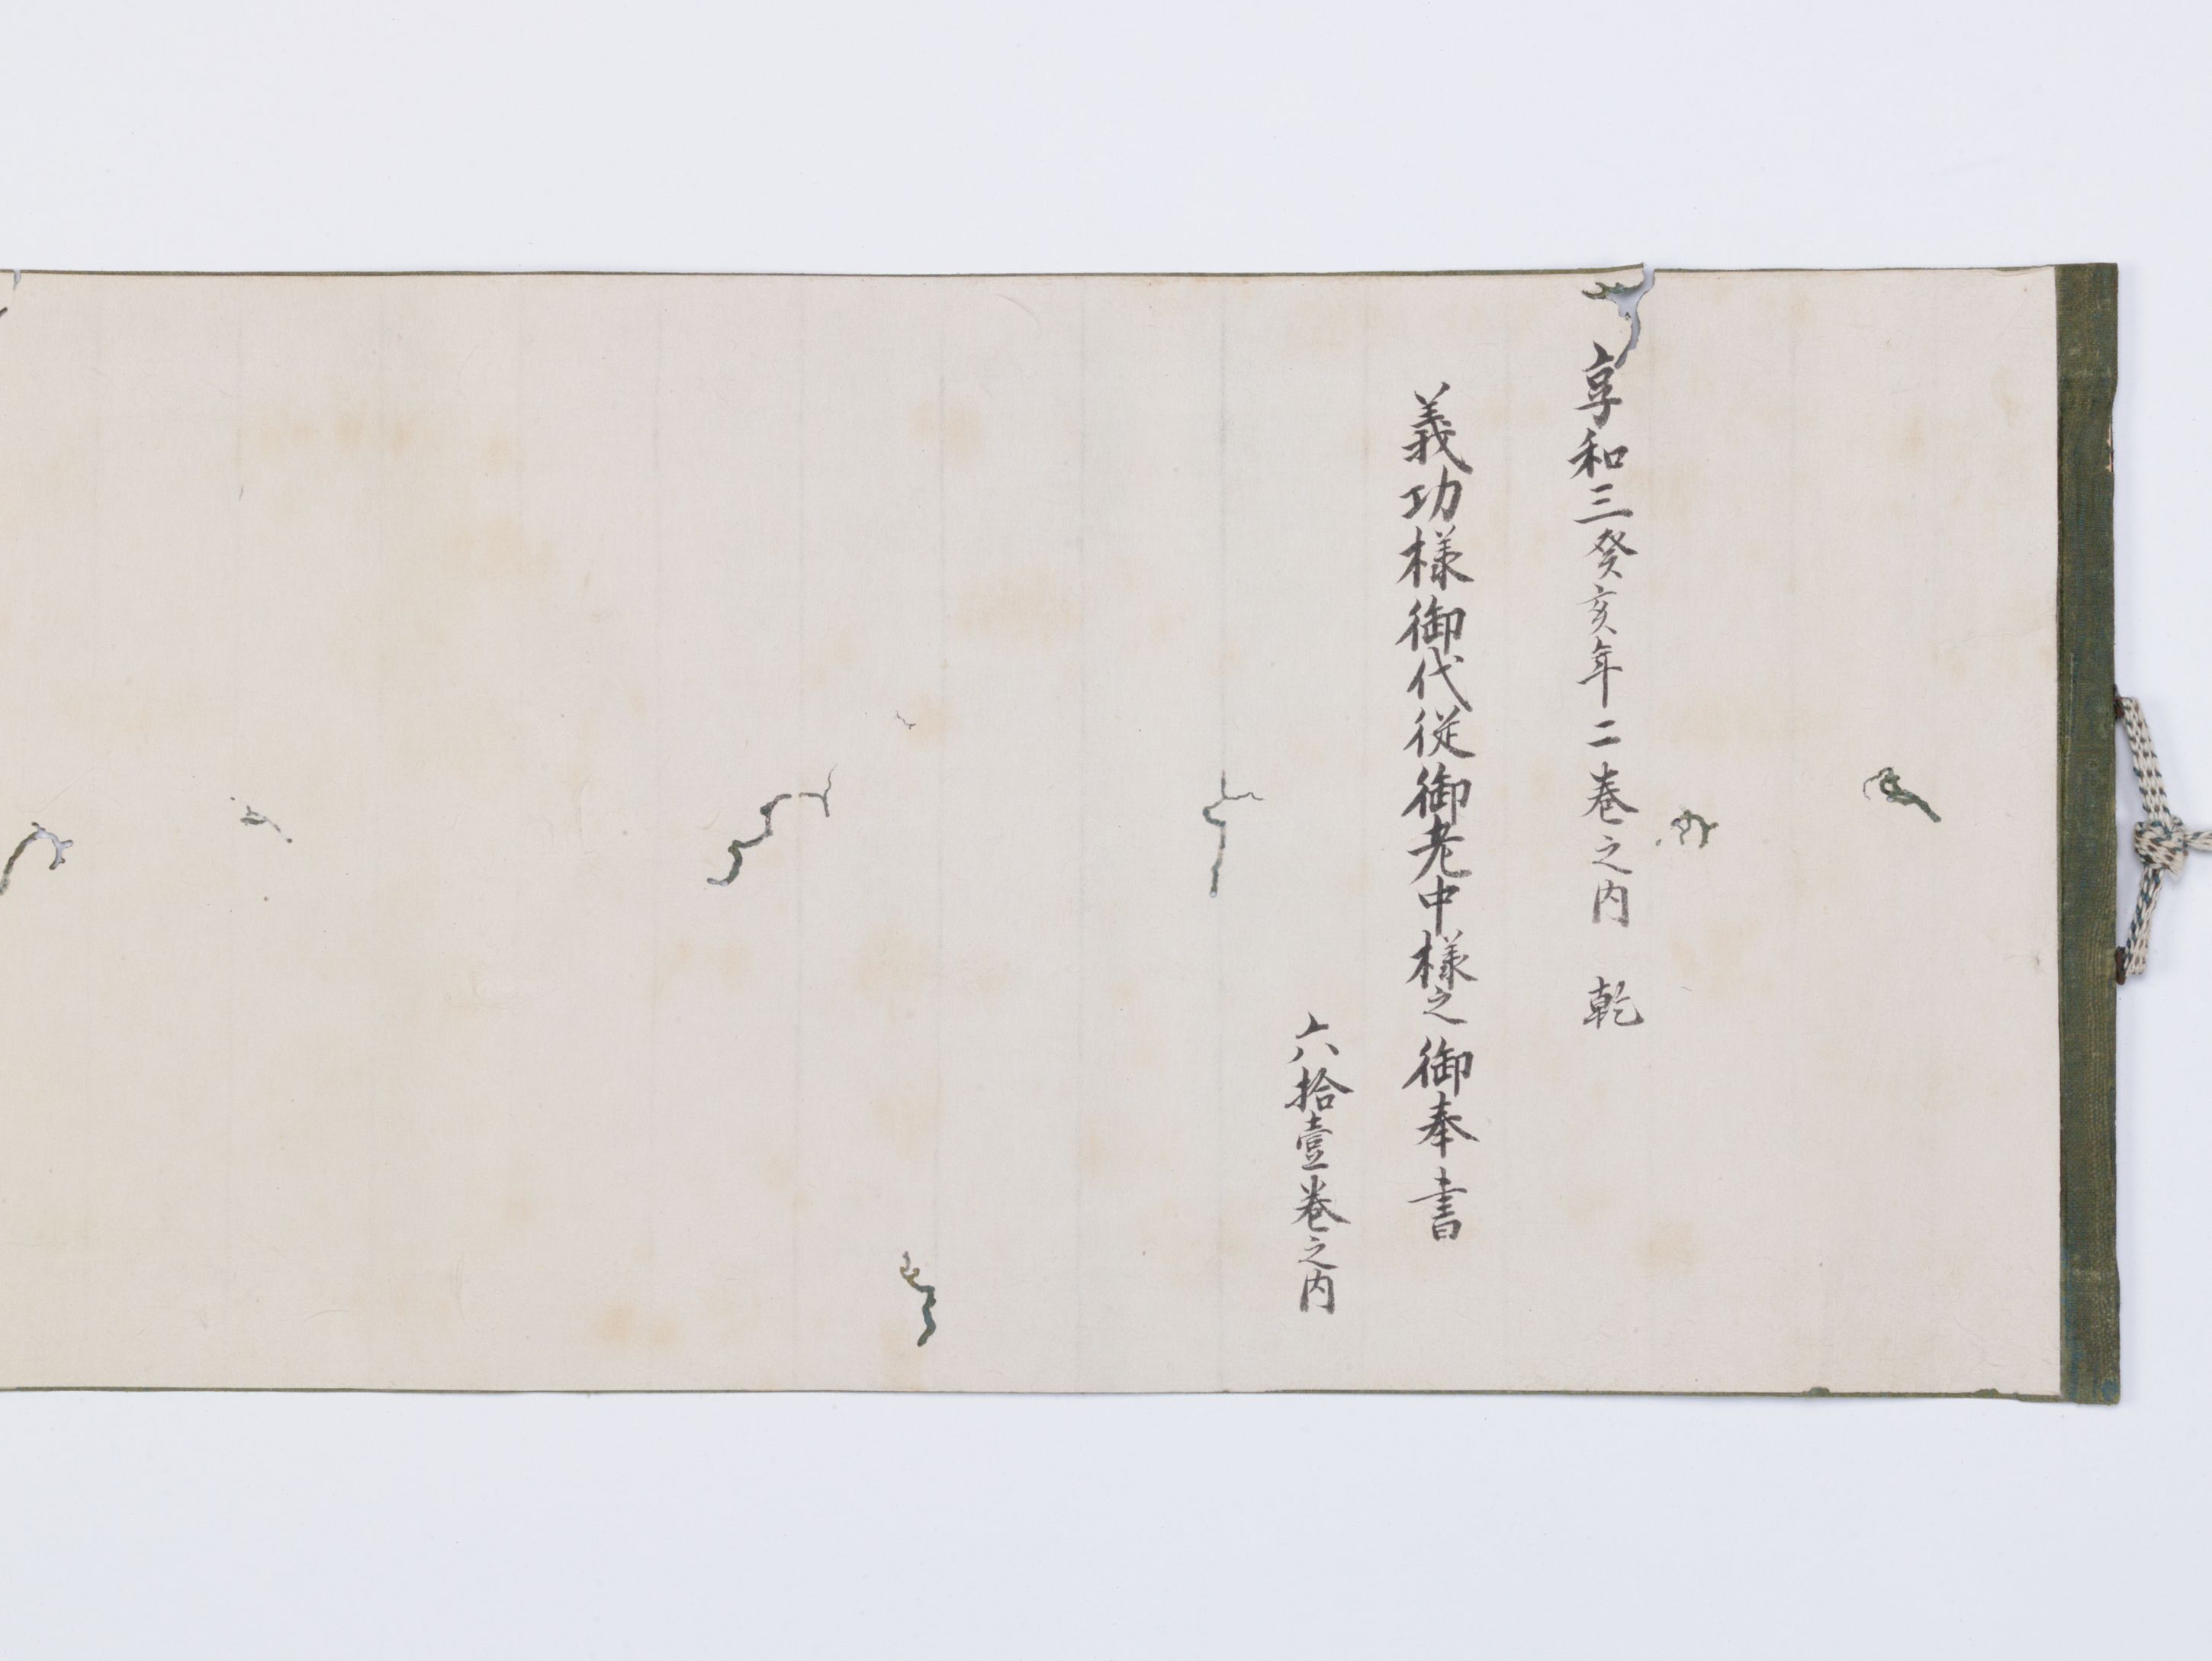 享和三癸亥年二巻之内 乾
義功様御代従御老中様之御奉書
六拾壹巻之内